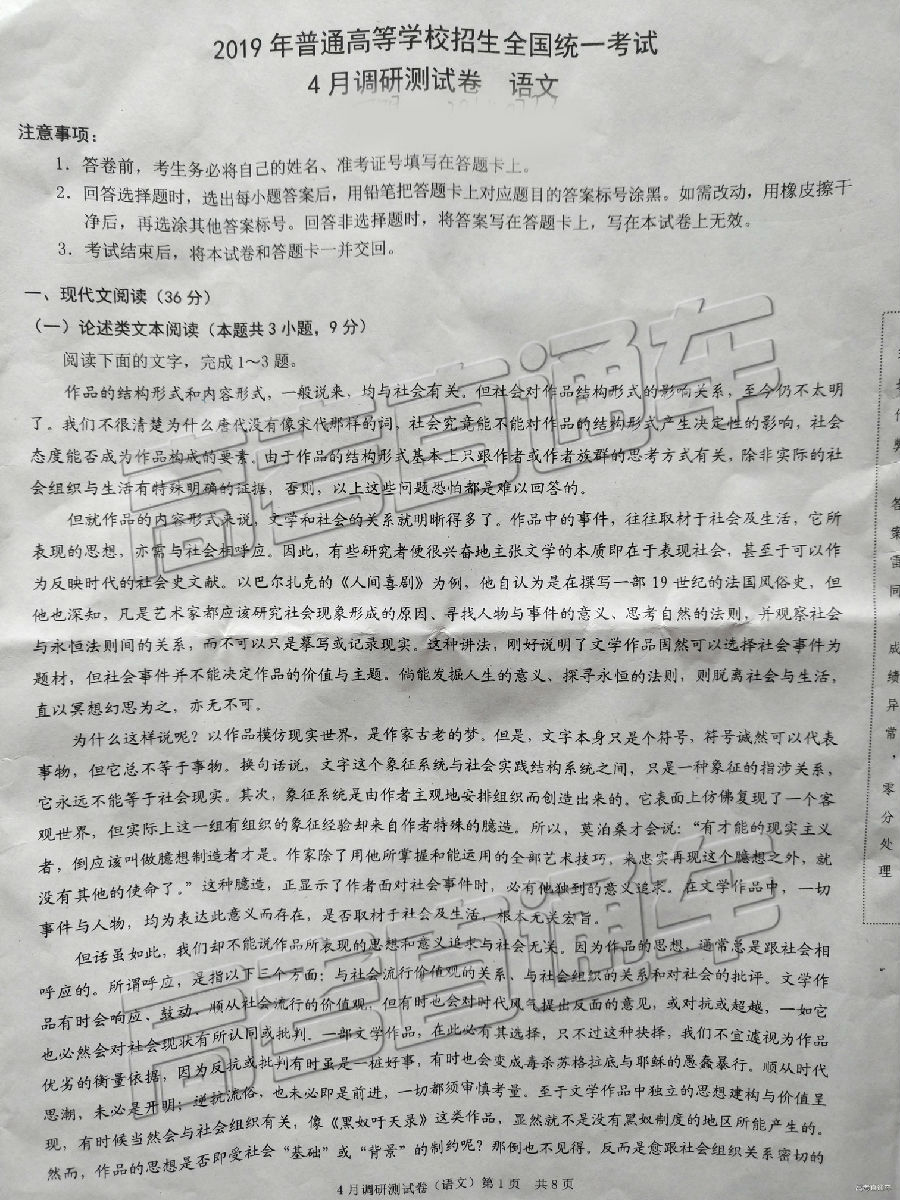 2019年普通高等学校招生全国统一考试
4月调研测试卷 语文
注意事项：
1．答卷前，考生务必将自己的姓名、准考证号填写在答题卡上。
2．回答选择题时，选出每小题答案后，用铅笔把答题卡上对应题目的答案标号涂黑。如需改动，用橡皮擦干
净后，再选涂其他答案标号。回答非选择题时，将答案写在答题卡上，写在本试卷上无效。
3．考试结束后，将本试卷和答题卡一并交回。
一、现代文阅读（36分）
（一）论述类文本阅读（本题共3小题，9分）
阅读下面的文字，完成1～3题。
作品的结构形式和内容形式，一般说来，均与社会有关。但社会对作品结构形式的影响关系，至今仍不太明
了。我们不很清楚为什么唐代没有像宋代那样的词，社会究竟能不能对作品的结构形式产生决定性的影响，社会
态度能否成为作品构成的要素。由于作品的结构形式基本上只跟作者或作者族群的思考方式有关，除非实际的社
会组织与生活有特殊明确的证据，否则，以上这些问题恐怕都是难以回答的。
但就作品的内容形式来说，文学和社会的关系就明晰得多了。作品中的事件，往往取材于社会及生活，它所
表现的思想，亦需与社会相呼应。因此，有些研究者便很兴奋地主张文学的本质即在于表现社会，甚至于可以作
为反映时代的社会史文献。以巴尔扎克的《人间喜剧》为例，他自认为是在撰写一部19世纪的法国风俗史，但
他也深知，凡是艺术家都应该研究社会现象形成的原因、寻找人物与事件的意义、思考自然的法则，并观察社会
与永恒法则间的关系，而不可以只是摹写或记录现实。这种讲法，刚好说明了文学作品固然可以选择社会事件为
题材，但社会事件并不能决定作品的价值与主题。倘能发掘人生的意义、探寻永恒的法则，则脱离社会与生活，
直以冥想幻思为之，亦无不可。
为什么这样说呢？以作品模仿现实世界，是作家古老的梦。但是，文字本身只是个符号，符号诚然可以代表
事物，但它总不等于事物。换句话说，文字这个象征系统与社会实践结构系统之间，只是一种象征的指涉关系，
它永远不能等于社会现实。其次，象征系统是由作者主观地安排组织而创造出来的，它表面上仿佛复现了一个客
观世界，但实际上这一组有组织的象征经验却来自作者特殊的臆造。所以，莫泊桑才会说：“有才能的现实主义
者，倒应该叫做臆想制造者才是。作家除了用他所掌握和能运用的全部艺术技巧，来忠实再现这个臆想之外，就
没有其他的使命了。”这种臆造，正显示了作者面对社会事件时，必有他独到的意义追求。在文学作品中，一切
事件与人物，均为表达此意义而存在，是否取材于社会及生活，根本无关宏旨。
但话虽如此，我们却不能说作品所表现的思想和意义追求与社会无关。因为作品的思想，通常总是跟社会相
呼应的。所谓呼应，是指以下三个方面：与社会流行价值观的关系、与社会组织的关系和对社会的批评。文学作
品有时会响应、鼓动、顺从社会流行的价值观，但有时也会对时代风气提出反面的意见，或对抗或超越，一如它
也必然会对社会现状有所认同或批判。一部文学作品，在此必有其选择，只不过这种抉择，我们不宜遽视为作品
优劣的衡量依据，因为反抗或批判有时虽是一桩好事，有时也会变成毒杀苏格拉底与耶稣的愚蠢暴行。顺从时代
思潮，未必是开明；逆抗流俗，也未必即是前进，一切都须审慎考量。至于文学作品中独立的思想建构与价值呈
现，有时候当然会与社会组织有关，像《黑奴吁天录》这类作品，显然就不是没有黑奴制度的地区所能产生的。
然而，作品的思想是否即受社会“基础”或“背景”的制约呢？那倒也不见得，反而是愈跟社会组织关系密切的
4月调研测试卷（语文）第1页 共8页
作弊
答案雷同
成绩异常，
零分处理
高考直通车
高考直通车
高考直通车